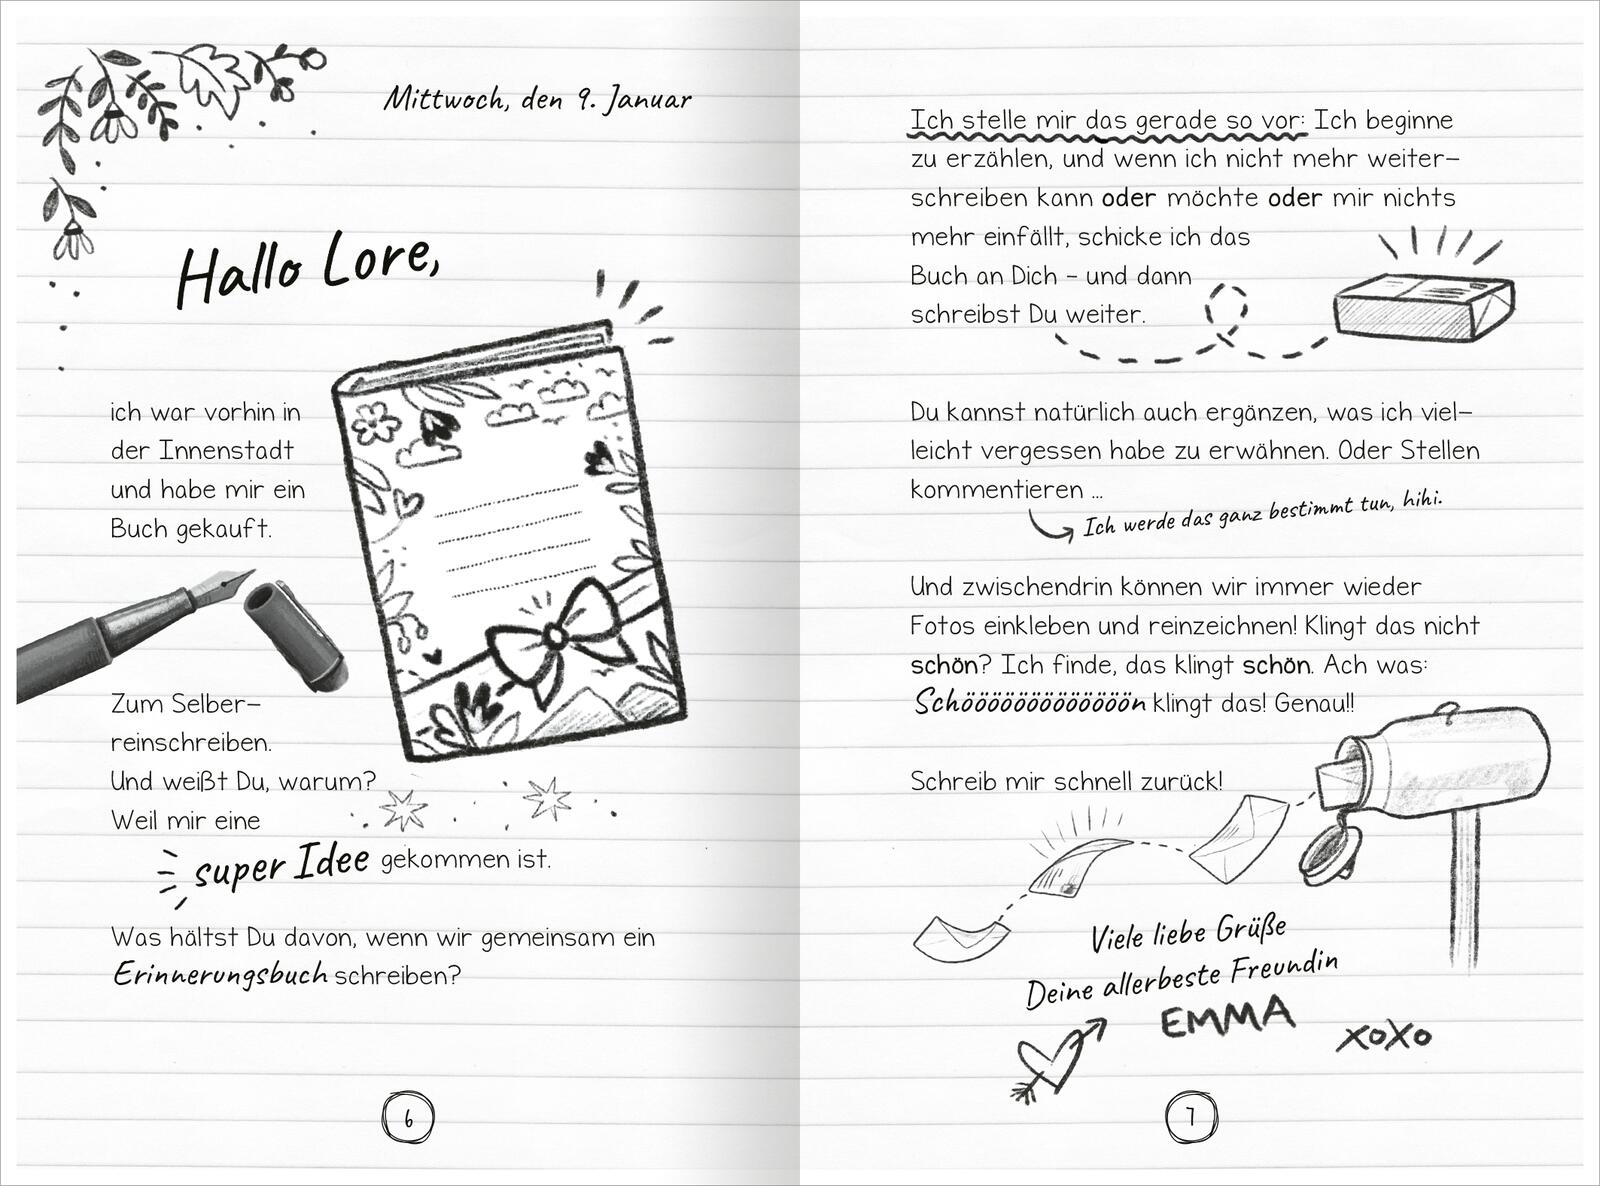 Mittwoch, den 9. Januar
Hallo Lore,
ich war vorhin in
der Innenstadt
und habe mir ein
Buch gekauft.
Zum Selber–
reinschreiben.
Und weißt Du, warum?
Weil mir eine
super Idee gekommen ist.
Was hältst Du davon, wenn wir gemeinsam ein
Erinnerungsbuch schreiben?
6
Ich stelle mir das gerade so vor: Ich beginne
zu erzählen, und wenn ich nicht mehr weiter–
schreiben kann oder möchte oder mir nichts
mehr einfällt, schicke ich das
Buch an Dich – und dann
schreibst Du weiter.
Du kannst natürlich auch ergänzen, was ich viel–
leicht vergessen habe zu erwähnen. Oder Stellen
kommentieren ...
Ich werde das ganz bestimmt tun, hihi.
Und zwischendrin können wir immer wieder
Fotos einkleben und reinzeichnen! Klingt das nicht
schön? Ich finde, das klingt schön. Ach was:
Schööööööööööööön klingt das! Genau!!
Schreib mir schnell zurück!
Viele liebe Grüße
Deine allerbeste Freundin
EMMA
xoxo
7